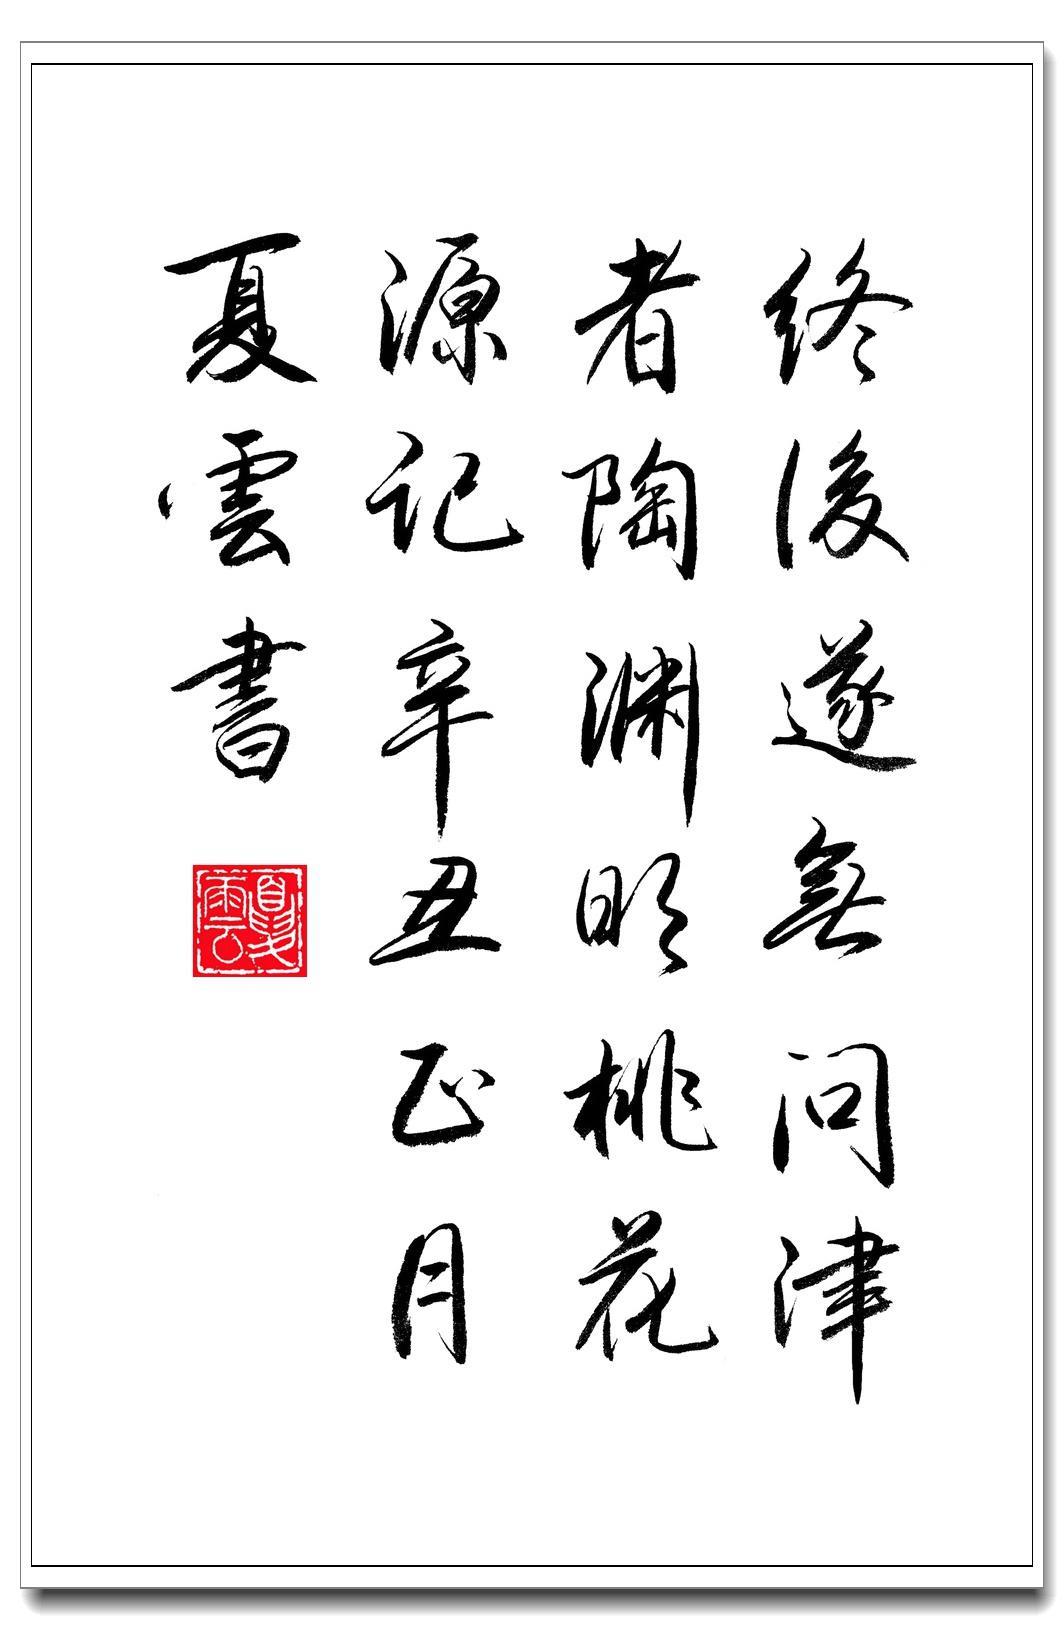 终後遂无问津
者陶渊明桃花
源记辛丑正月
夏雲書
夏雲